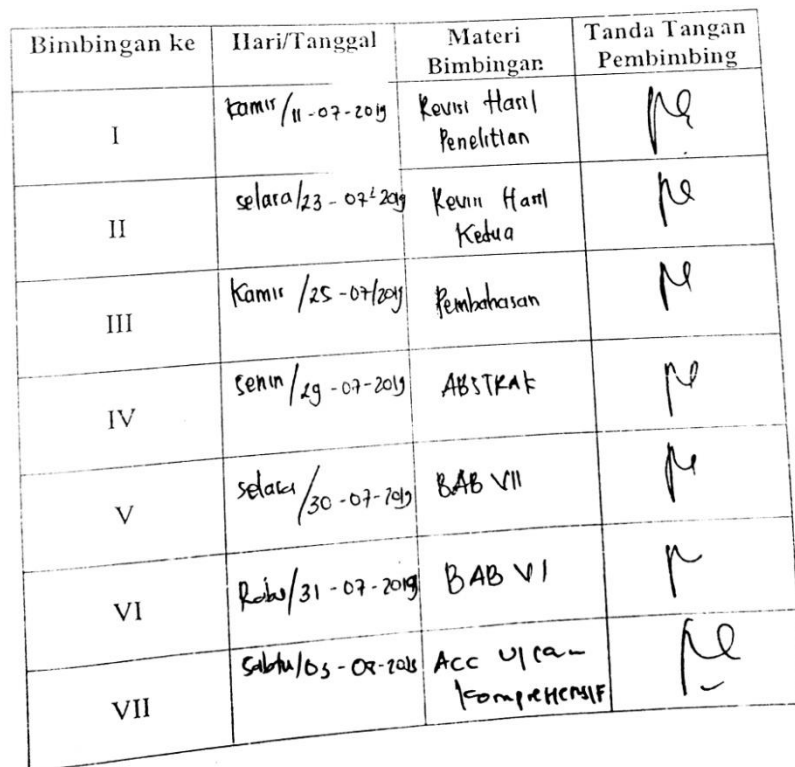 Bimbingan ke Hari/Tanggal Materi Bimbingan Tanda Tangan Pembimbing
I Kamis/11-07-2019 Revisi Hasil Penelitian
II selasa/23-07-2019 Revisi Hasil Kedua
III Kamis/25-07/2019 Pembahasan
IV Senin/29-07-2019 ABSTRAK
V selasa/30-07-2019 BAB VII
VI Rabu/31-07-2019 BAB VI
VII Sabtu/03-08-2019 ACC Ujian Komprehensif